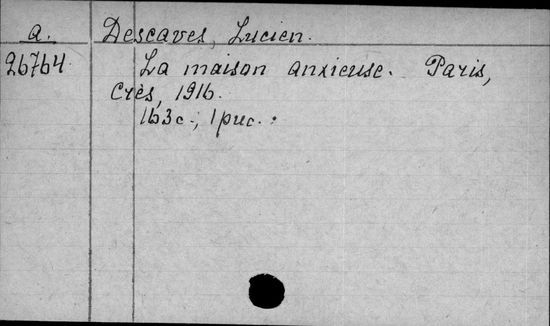 a. Descaves, Lucien.
26764 La maison anxieuse. Paris,
Crès, 1916.
163 c.; 1 рис.